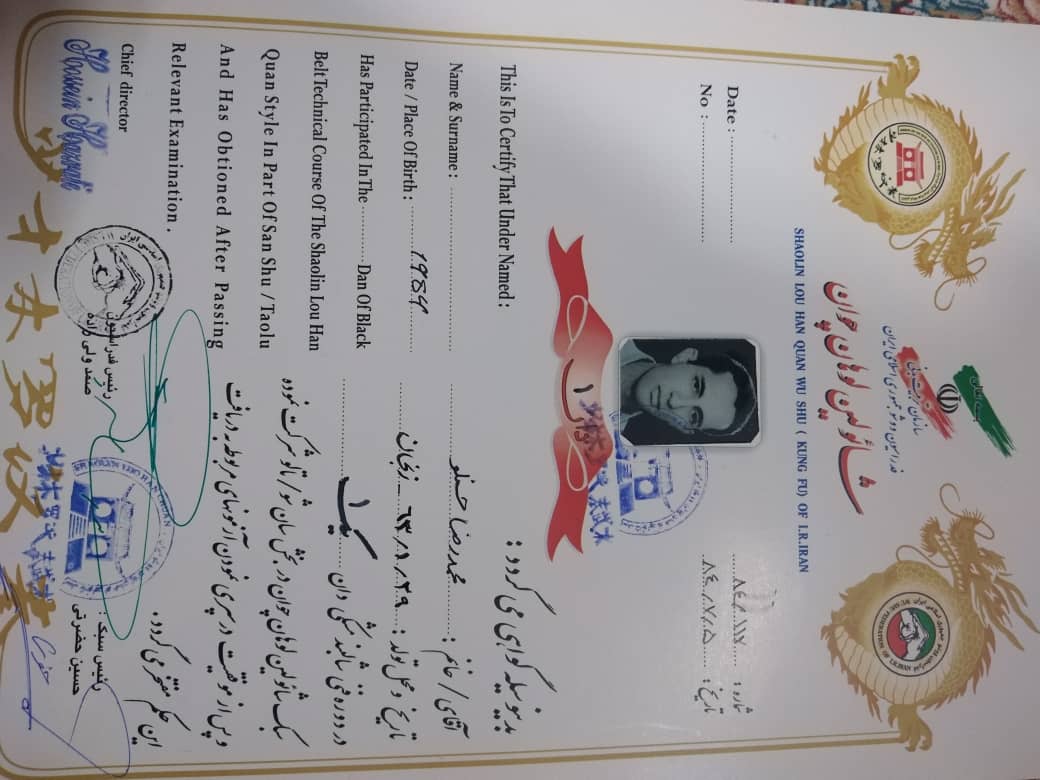 سازمان تربیت بدنی
فدراسیون ووشو جمهوری اسلامی ایران
شائولین لوهان چوان
SHAOLIN LOU HAN QUAN WU SHU ( KUNG FU) OF I.R.IRAN
Date : ..............................
No : ..............................
شماره : ۸۴/۰۱۱۷
تاریخ : ۸۴/۷/۵
This Is To Certify That Under Named :
Name & Surname :
Date / Place Of Birth : 1984
Has Participated In The ............ Dan Of Black
Belt Technical Course Of The Shaolin Lou Han
Quan Style In Part Of San Shu / Taolu
And Has Obtioned After Passing
Relevant Examination .
بدینوسیله گواهی می گردد :
آقای / خانم : محمدرضا
تاریخ و محل تولد : زنجان
در دوره فنی شالبند مشکی دان یک
سبک شائولین لوهان چوان در بخش سان شو / تالو شرکت نموده
و پس از موفقیت در سپری نمودن آزمونهای مربوطه به دریافت
این حکم مفتخر می گردد.
Chief director
Hossein Hazrati
رئیس فدراسیون
صمد ولی زاده
رئیس سبک :
حسین حضرتی